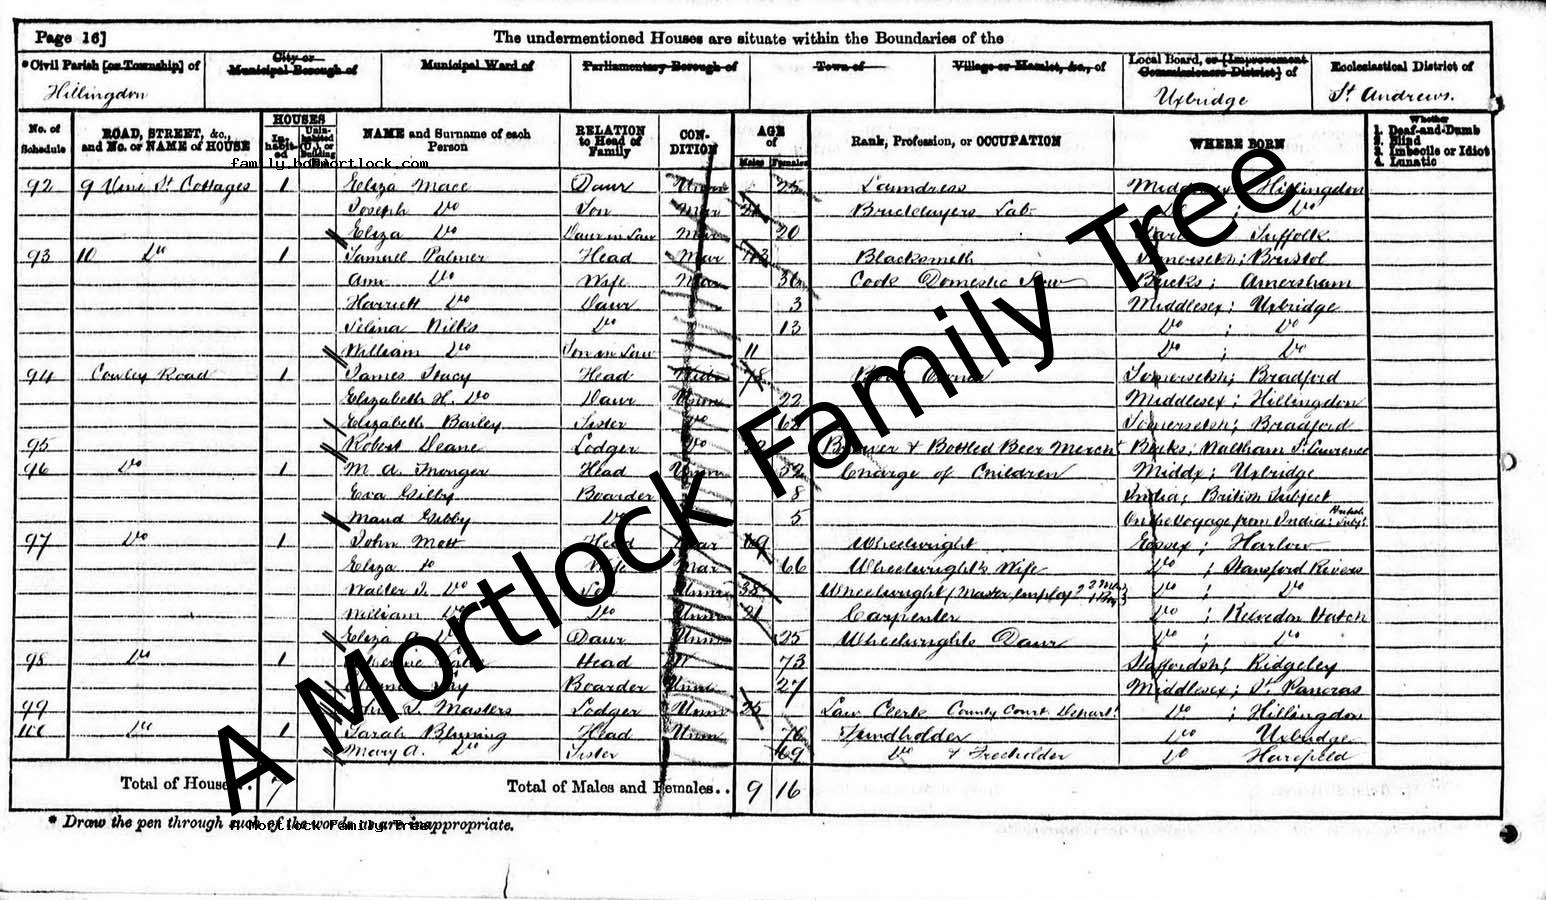 Page 16] The undermentioned Houses are situate within the Boundaries of the
*Civil Parish [or Township] of City or Municipal Borough of Municipal Ward of Parliamentary Borough of Town of Village or Hamlet, &c., of Local Board, or [Improvement Commissioners District] of Ecclesiastical District of
Hillingdon Uxbridge St Andrews.
No. of Schedule ROAD, STREET, &c., and No. or NAME of HOUSE HOUSES In-habit-ed Unin-habited (U.), or Building NAME and Surname of each Person RELATION to Head of Family CON-DITION AGE of Males Females Rank, Profession, or OCCUPATION WHERE BORN Whether 1. Deaf-and-Dumb 2. Blind 3. Imbecile or Idiot 4. Lunatic
92 9 Vine St Cottages 1 Eliza Mace Daur Unm 25 Laundress Hillingdon
Joseph Do Son Mar Bricklayers Lab. Do
Eliza Do Daur in Law Mar 20 Suffolk
93 10 Do 1 Samuel Palmer Head Mar 43 Blacksmith Somersetsh; Bristol
Ann Do Wife Mar 36 Cook Domestic Bucks; Amersham
Harriett Do Daur 3 Middlesex; Uxbridge
Selina Wilks Do 13 Do ; Do
William Do Son in Law 11 Do ; Do
94 Cowley Road 1 James Stacy Head Somersetsh; Bradford
Elizabeth H. Do Daur Unm 22 Middlesex; Hillingdon
Elizabeth Bailey Sister Somersetsh; Bradford
95 Robert Deane Lodger Do Brewer & Bottled Beer Mercht Berks; Waltham St Lawrence
96 Do 1 M. A. Head Unm 52 Charge of Children Middx; Uxbridge
Eva Gibby Boarder 8 India; British Subject
Maud Gibby Do 5 On the Voyage from India; British Subjt.
97 Do 1 John Mott Head Mar 69 Wheelwright Essex; Harlow
Eliza Do Wife Mar 66 Wheelwright's Wife Do ; Stansford Rivers
Walter J. Do Son Unm 35 Wheelwright (Master, employ 2 Men 1 Boy) Do ; Do
William Do Do Unm 21 Carpenter Do ; Kelvedon Hatch
Eliza Daur Unm 25 Wheelwrights Daur Do ; Do
98 Do 1 Head 73 Staffordsh; Ridgeley
Boarder Unm 27 Middlesex; St Pancras
99 Masters Lodger Unm 25 Law Clerk County Court Depart. Do ; Hillingdon
100 Do 1 Sarah Head Unm 76 Fundholder Do Uxbridge
Mary A. Do Sister 69 Do & Freeholder Do Harefield
Total of Houses.. 7 Total of Males and Females.. 9 16
* Draw the pen through such of the words as are inappropriate.
A Mortlock Family Tree
A Mortlock Family Tree